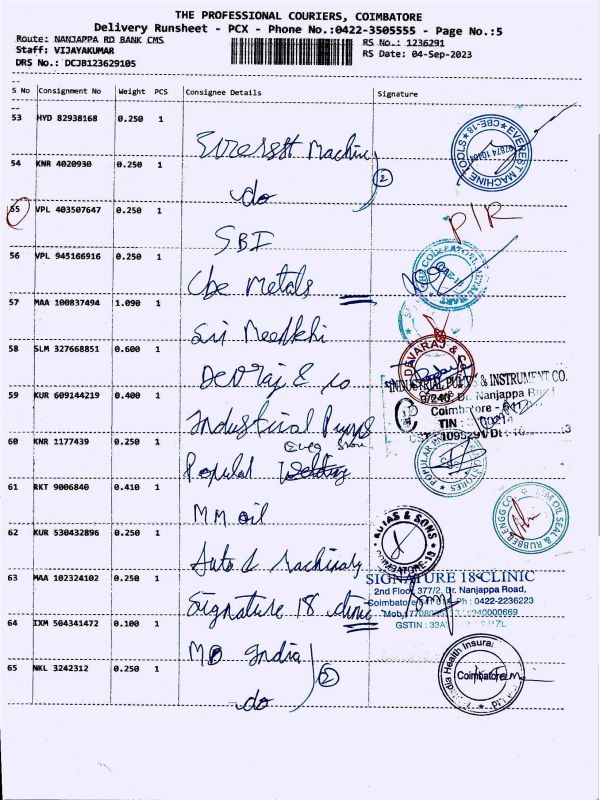 THE PROFESSIONAL COURIERS, COIMBATORE
Delivery Runsheet - PCX - Phone No.:0422-3505555 - Page No.:5
Route: NANJAPPA RD BANK CMS
RS No.: 1236291
Staff: VIJAYAKUMAR
RS Date: 04-Sep-2023
DRS No.: DCJB123629105
S No Consignment No Weight PCS Consignee Details Signature
53 HYD 82938168 0.250 1
Everest Machine
EVEREST MACHINE TOOLS CBE-18
54 KNR 4020930 0.250 1
do
2
55 VPL 403507647 0.250 1
SBI
P/R
56 VPL 945166916 0.250 1
Cbe Metals
57 MAA 100837494 1.090 1
Sri Meenkhi
58 SLM 327668851 0.600 1
Devraj & co
DEVARAJ & CO
59 KUR 609144219 0.400 1
Industrial Pumps
INDUSTRIAL PUMP & INSTRUMENT CO.
9/240, Dr. Nanjappa Road
Coimbatore - 641
TIN :
60 KNR 1177439 0.250 1
Popular
POPULAR
61 RKT 9006840 0.410 1
MM oil
M OIL SEAL & RUBBER ENGG CO
62 KUR 530432896 0.250 1
Auto & machinary
& SONS
COIMBATORE-18
63 MAA 102324102 0.250 1
Signature 18 clinic
SIGNATURE 18 CLINIC
2nd Floor, 377/2, Dr. Nanjappa Road,
Coimbatore Ph : 0422-2236223
Mob
GSTIN : 33A
64 IXM 504341472 0.100 1
MD India
65 NKL 3242312 0.250 1
do
2
India Health Insura
Coimbatore